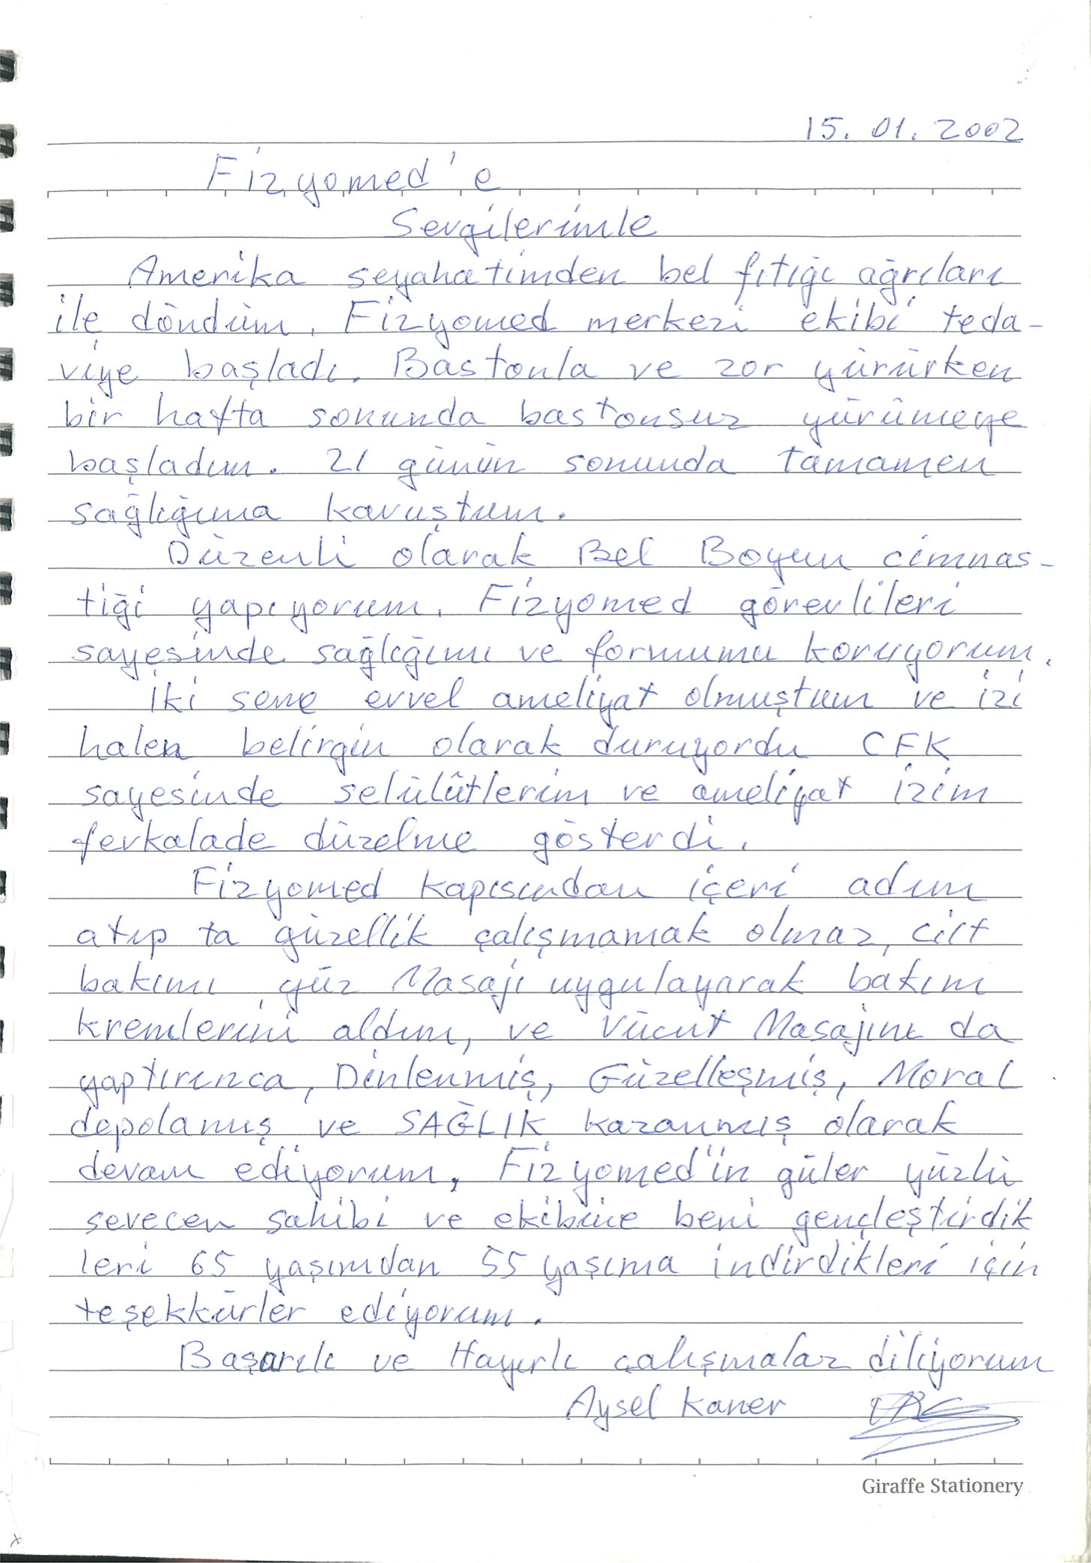 15.01.2002
Fizyomed'e
Sevgilerimle
Amerika seyahatimden bel fıtığı ağrıları
ile döndüm. Fizyomed merkezi ekibi teda-
viye başladı. Bastonla ve zor yürürken
bir hafta sonunda bastonsuz yürümeye
başladım. 21 günün sonunda tamamen
sağlığıma kavuştum.
Düzenli olarak Bel Boyun cimnas-
tiği yapıyorum. Fizyomed görevlileri
sayesinde sağlığımı ve formumu koruyorum.
İki sene evvel ameliyat olmuştum ve izi
halen belirgin olarak duruyordu CFK
sayesinde selülütlerim ve ameliyat izim
fevkalade düzelme gösterdi.
Fizyomed kapısından içeri adım
atıp ta güzellik çalışmamak olmaz, cilt
bakımı, yüz Masajı uygulayarak bakım
kremlerini aldım, ve Vücut Masajını da
yaptırınca, Dinlenmiş, Güzelleşmiş, Moral
depolamış ve SAĞLIK kazanmış olarak
devam ediyorum, Fizyomed'in güler yüzlü
sevecen sahibi ve ekibine beni gençleştirdik
leri 65 yaşımdan 55 yaşıma indirdikleri için
teşekkürler ediyorum.
Başarılı ve Hayırlı çalışmalar diliyorum
Aysel Kaner
Giraffe Stationery